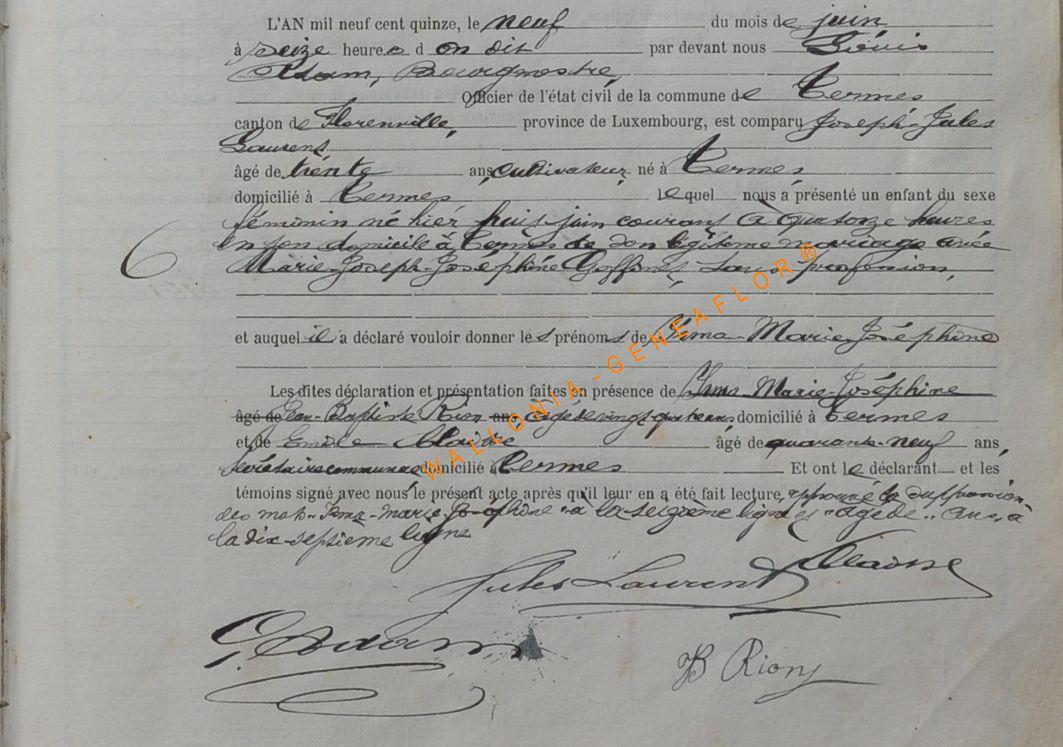 L'AN mil neuf cent quinze, le neuf du mois de juin
à seize heures d on dit par devant nous Louis
Adam, Bourgmestre,
Officier de l'état civil de la commune de Termes
canton de Florenville, province de Luxembourg, est comparu Joseph-Jules
Laurent
âgé de trente ans, cultivateur, né à Termes,
domicilié à Termes, lequel nous a présenté un enfant du sexe
féminin né hier huit juin courant à quatorze heures
en son domicile à Termes de son légitime mariage avec
6 Marie-Joseph-Joséphine sans profession,
et auquel il a déclaré vouloir donner les prénoms de Irma-Marie-Joséphine
Les dites déclaration et présentation faites en présence de Irma-Marie-Joséphine
âgé de Jean-Baptiste Rion ans, âgé de vingt-quatre ans, domicilié à Termes
et de Emile âgé de quarante-neuf ans,
secrétaire communal domicilié à Termes Et ont le déclarant et les
témoins signé avec nous le présent acte après qu'il leur en a été fait lecture, approuvé la suppression
des mots "Irma-Marie-Joséphine" à la seizième ligne et "âgé de" "ans" à
la dix-septième ligne
Jules Laurent
L. Adam
JB Rion
WALLONIA-GENEAFLOR®